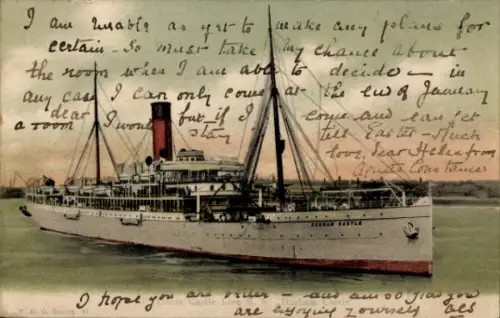 I am unable as yet to make any plans for
certain - So must take my chance about
the room when I am able to decide - in
any case I can only come at the end of January
dear I would but if I come and can get
a room stay till Easter - Much
love, dear Helen from
Constance
DURHAM CASTLE
Union Castle Line S.S. "Durham Castle"
I hope you are better - and am so glad you
are enjoying yourselves